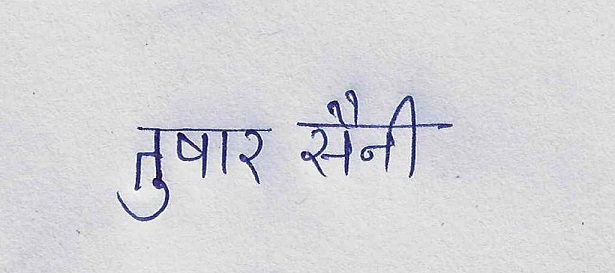 तुषार सैनी